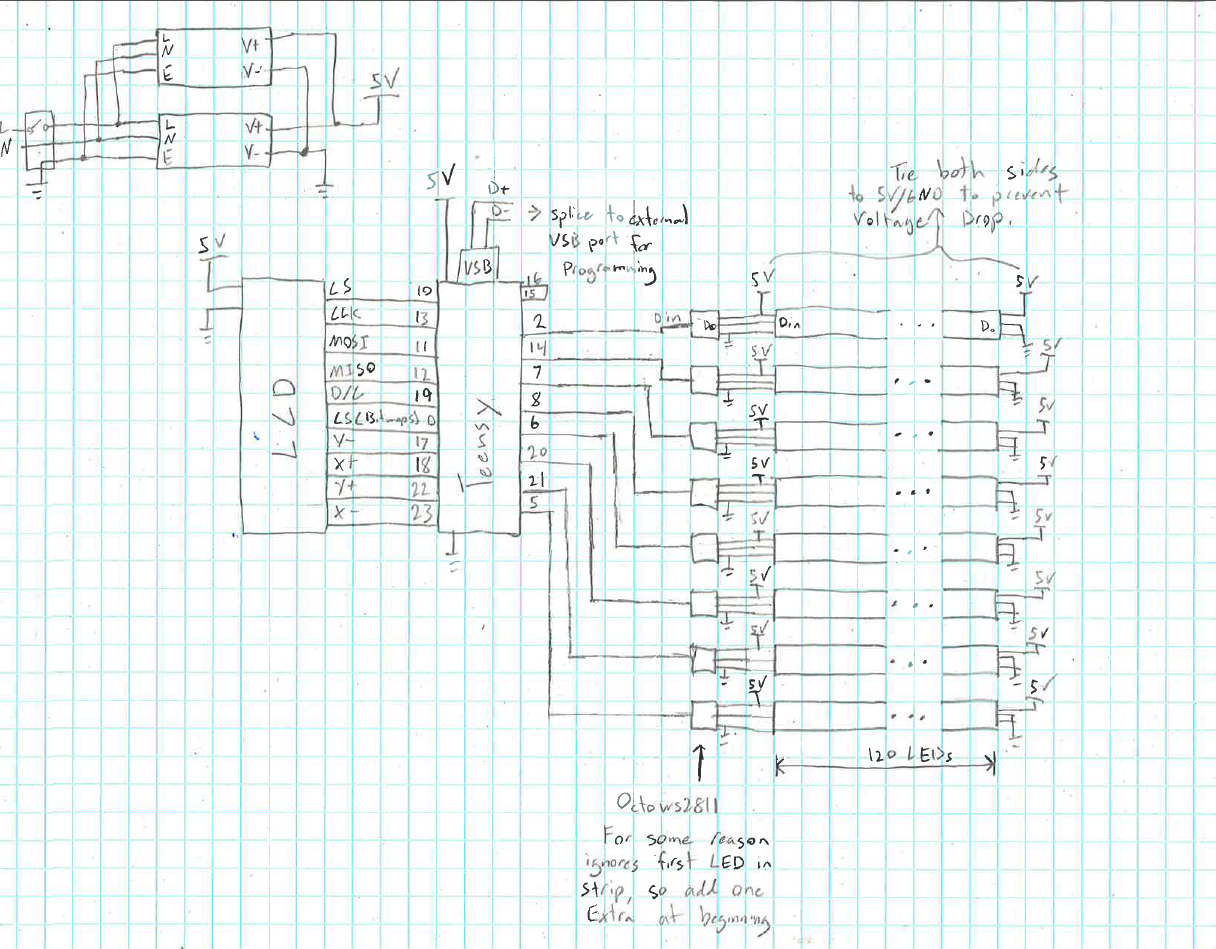 L
N
E
V+
V-
L
N
L
N
E
V+
V-
5V
5V
D+
D-
→ splice to external
USB port for
Programming
USB
Tie both sides
to 5V/GND to prevent
Voltage Drop.
5V
LCD
LS 10
CLK 13
MOSI 11
MISO 12
D/C 19
LS(Bitmaps) 0
Y- 17
X+ 18
Y+ 22
X- 23
Teensy
16
15
2
14
7
8
6
20
21
5
Din
Do
5V
Din
...
Do
5V
5V
...
5V
5V
...
5V
5V
...
5V
5V
...
5V
5V
...
5V
5V
...
5V
5V
...
5V
120 LEDs
Octows2811
For some reason
ignores first LED in
strip, so add one
Extra at beginning